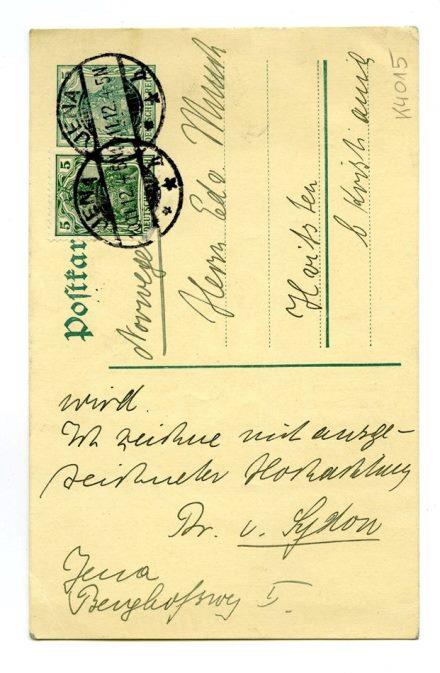 Postkar
Norwegen
Herrn Edv. Munch
Hvitsten
b Kristiania
K4015
5 5
5 5
JENA
11.12. 4-5N
JENA
11.12. 4-5N
wird.
Ich zeichne mit ausge-
zeichneter Hochachtung
Dr. v. Sydow
Jena
Berghofsweg I.